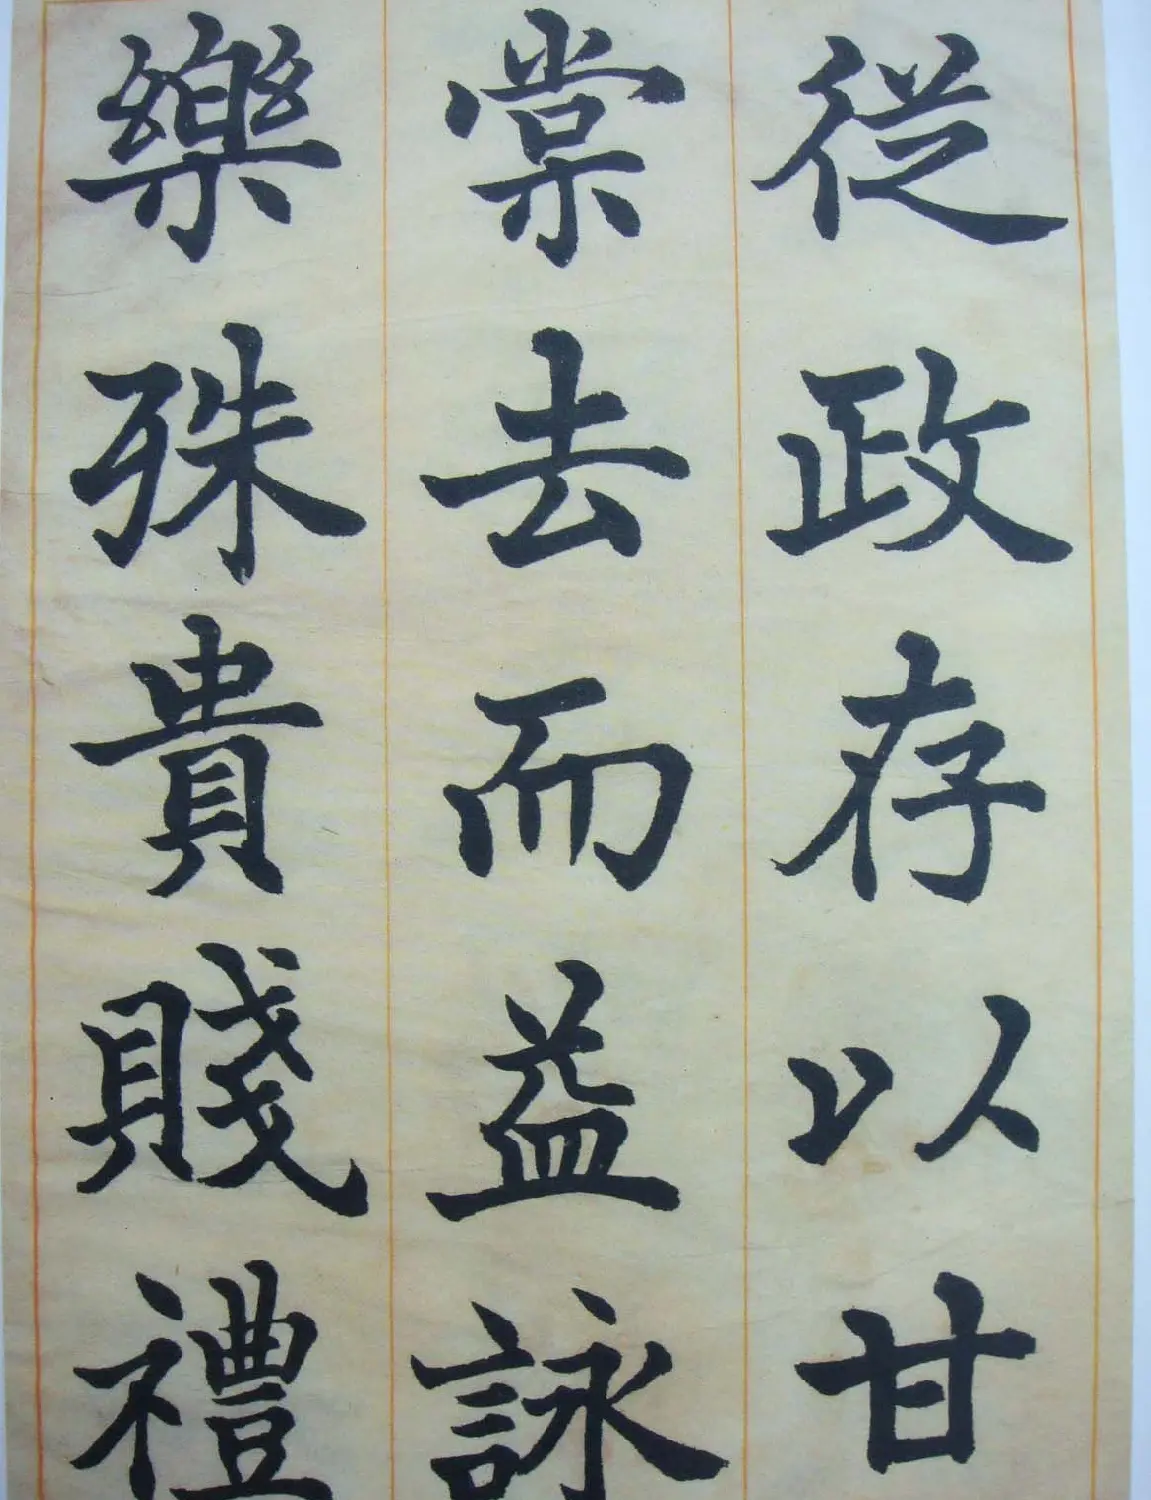 從政存以甘
棠去而益詠
樂殊貴賤禮